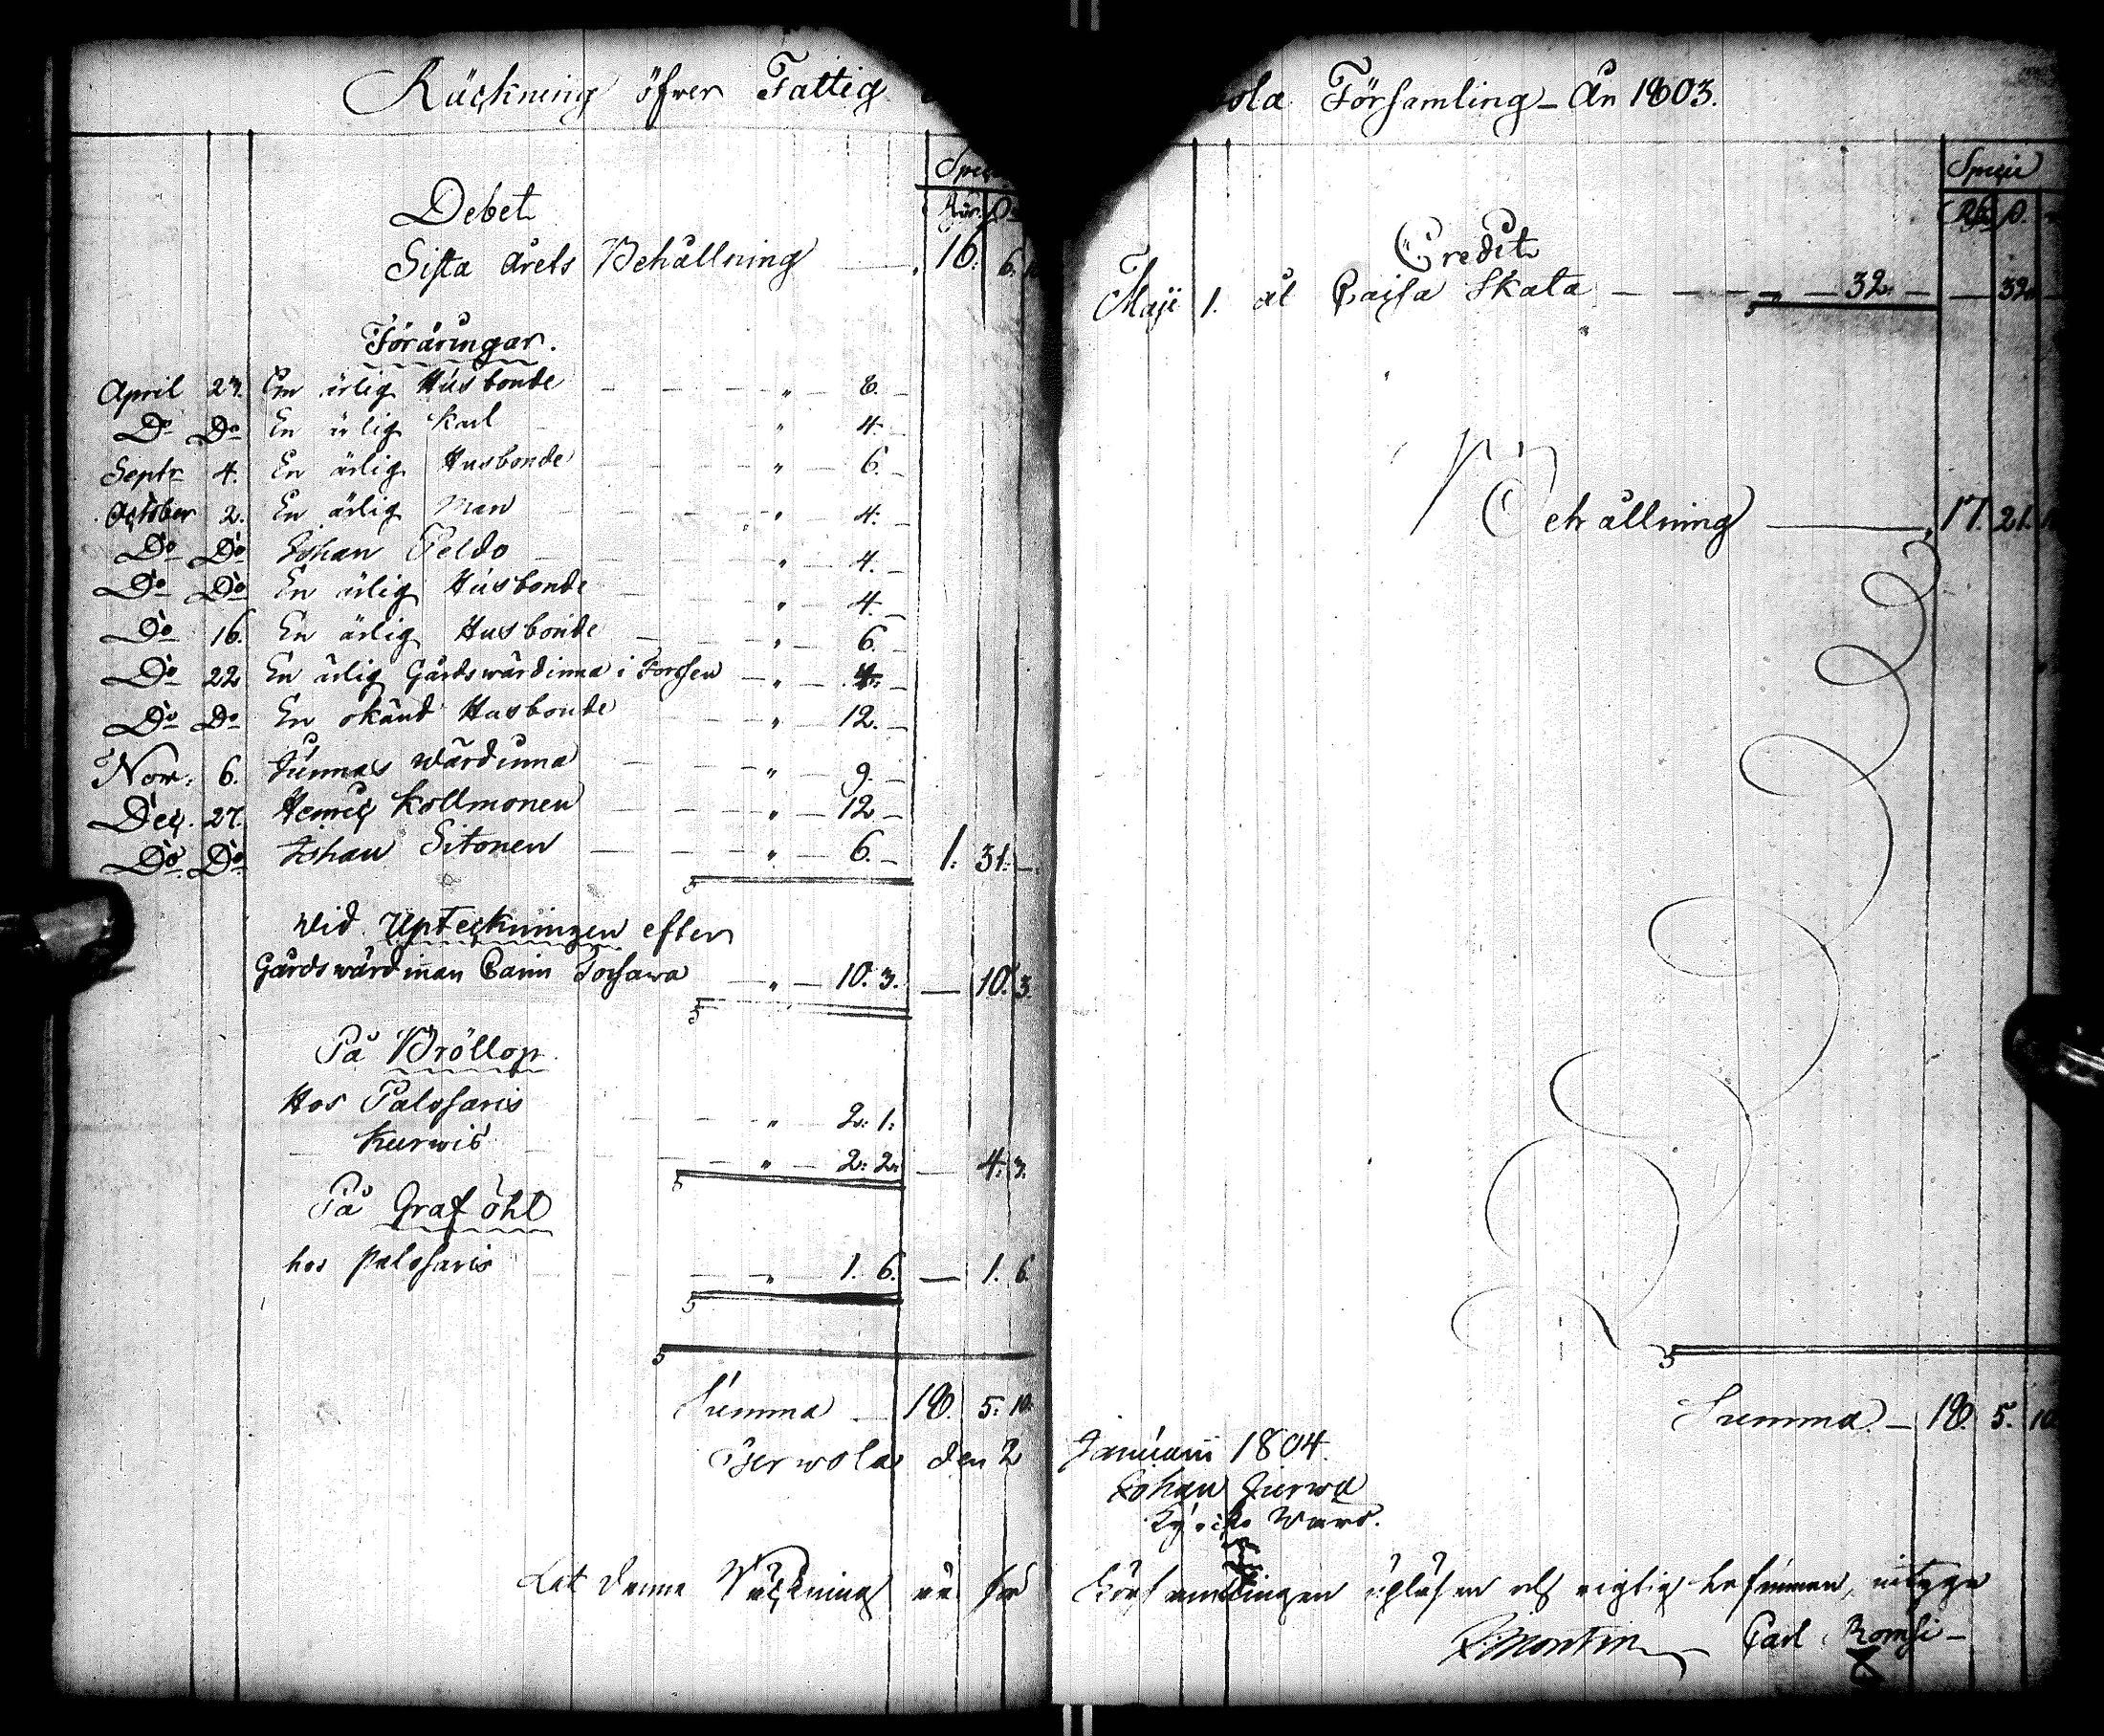 Räckning öfwer Fattig
Debet
Sista årets Behållning 16. 6.
Föräringar.
April 23. En ärlig Husbonde " 8.
Do Do En ärlig Karl " 4.
Septr 4. En ärlig Husbonde " 6.
October 2. En ärlig Man " 4.
Do Do Johan Peldo " 4.
Do Do En ärlig Husbonde " 4.
Do 16. En ärlig Husbonde " 6.
Do 22 En ärlig Gårdswärdinna i Forssen " 4.
Do Do En okänd Husbonde " 12.
Nov. 6. Junnas Wärdinna " 9.
Dec. 27. Henric Kollmonen " 12
Do Do Johan Sitonen " 6. 1. 31.
Wid Upteckningen efter
Gårdswärdinnan Carin Torsawa " 10. 3. 10. 3.
På Bröllop
Hos Palosaris " 2. 1.
Kurwis " 2. 2. 4. 3.
På Graföhl
hos Palosaris " 1. 6. 1. 6.
Summa 18. 5. 10.
Terwola den 2
Lat denna Räckning är för
ola Församling År 1803.
Specie
Credit
Maji 1. åt Caisa Skata 32. 32
Behållning 17. 21.
Summa 18. 5. 10
Januarii 1804.
Johan Jurwa
Kyrcko Ward.
Församlingen upläsen och rigtig befunnen, intyga
Montin Carl Romsi